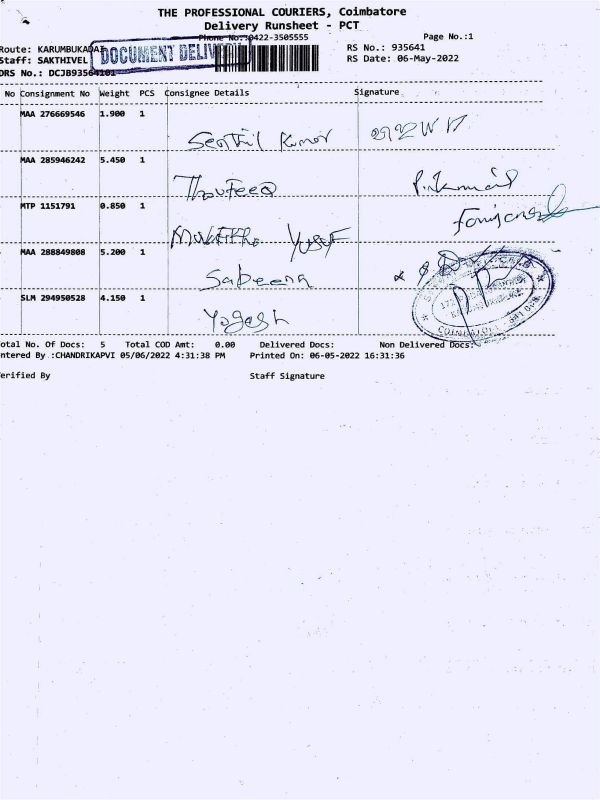 THE PROFESSIONAL COURIERS, Coimbatore
Delivery Runsheet - PCT
Phone No.:0422-3505555
Page No.:1
Route: KARUMBUKADAI
RS No.: 935641
Staff: SAKTHIVEL
DOCUMENT DELIV
RS Date: 06-May-2022
DRS No.: DCJB93564101
No Consignment No Weight PCS Consignee Details Signature
MAA 276669546 1.900 1
Senthil Kumar
MAA 285946242 5.450 1
Thoufeeq
MTP 1151791 0.850 1
Yusuf
MAA 288849808 5.200 1
Sabeena
SLM 294950528 4.150 1
Yogesh
COIMBATORE
otal No. Of Docs: 5 Total COD Amt: 0.00 Delivered Docs: Non Delivered Docs:
ntered By :CHANDRIKAPVI 05/06/2022 4:31:38 PM Printed On: 06-05-2022 16:31:36
erified By Staff Signature